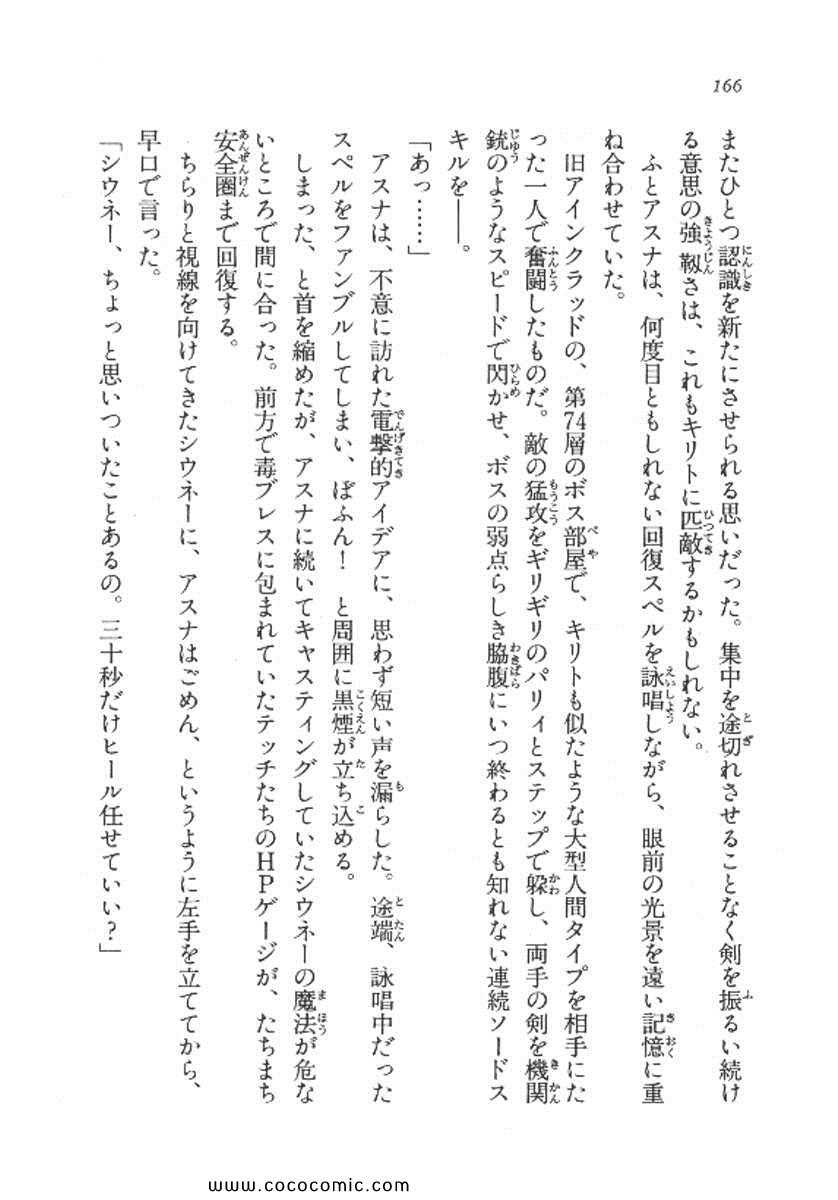 166
またひとつ認識を新たにさせられる思いだった。集中を途切れさせることなく剣を振るい続け
る意思の強靱さは、これもキリトに匹敵するかもしれない。
　ふとアスナは、何度目ともしれない回復スペルを詠唱しながら、眼前の光景を遠い記憶に重
ね合わせていた。
　旧アインクラッドの、第74層のボス部屋で、キリトも似たような大型人間タイプを相手にた
った一人で奮闘したものだ。敵の猛攻をギリギリのパリィとステップで躱し、両手の剣を機関
銃のようなスピードで閃かせ、ボスの弱点らしき脇腹にいつ終わるとも知れない連続ソードス
キルを――。
「あっ……」
　アスナは、不意に訪れた電撃的アイデアに、思わず短い声を漏らした。途端、詠唱中だった
スペルをファンブルしてしまい、ぼふん！　と周囲に黒煙が立ち込める。
　しまった、と首を縮めたが、アスナに続いてキャスティングしていたシウネーの魔法が危な
いところで間に合った。前方で毒ブレスに包まれていたテッチたちのHPゲージが、たちまち
安全圏まで回復する。
　ちらりと視線を向けてきたシウネーに、アスナはごめん、というように左手を立ててから、
早口で言った。
「シウネー、ちょっと思いついたことあるの。三十秒だけヒール任せていい？」
www.cococomic.com/